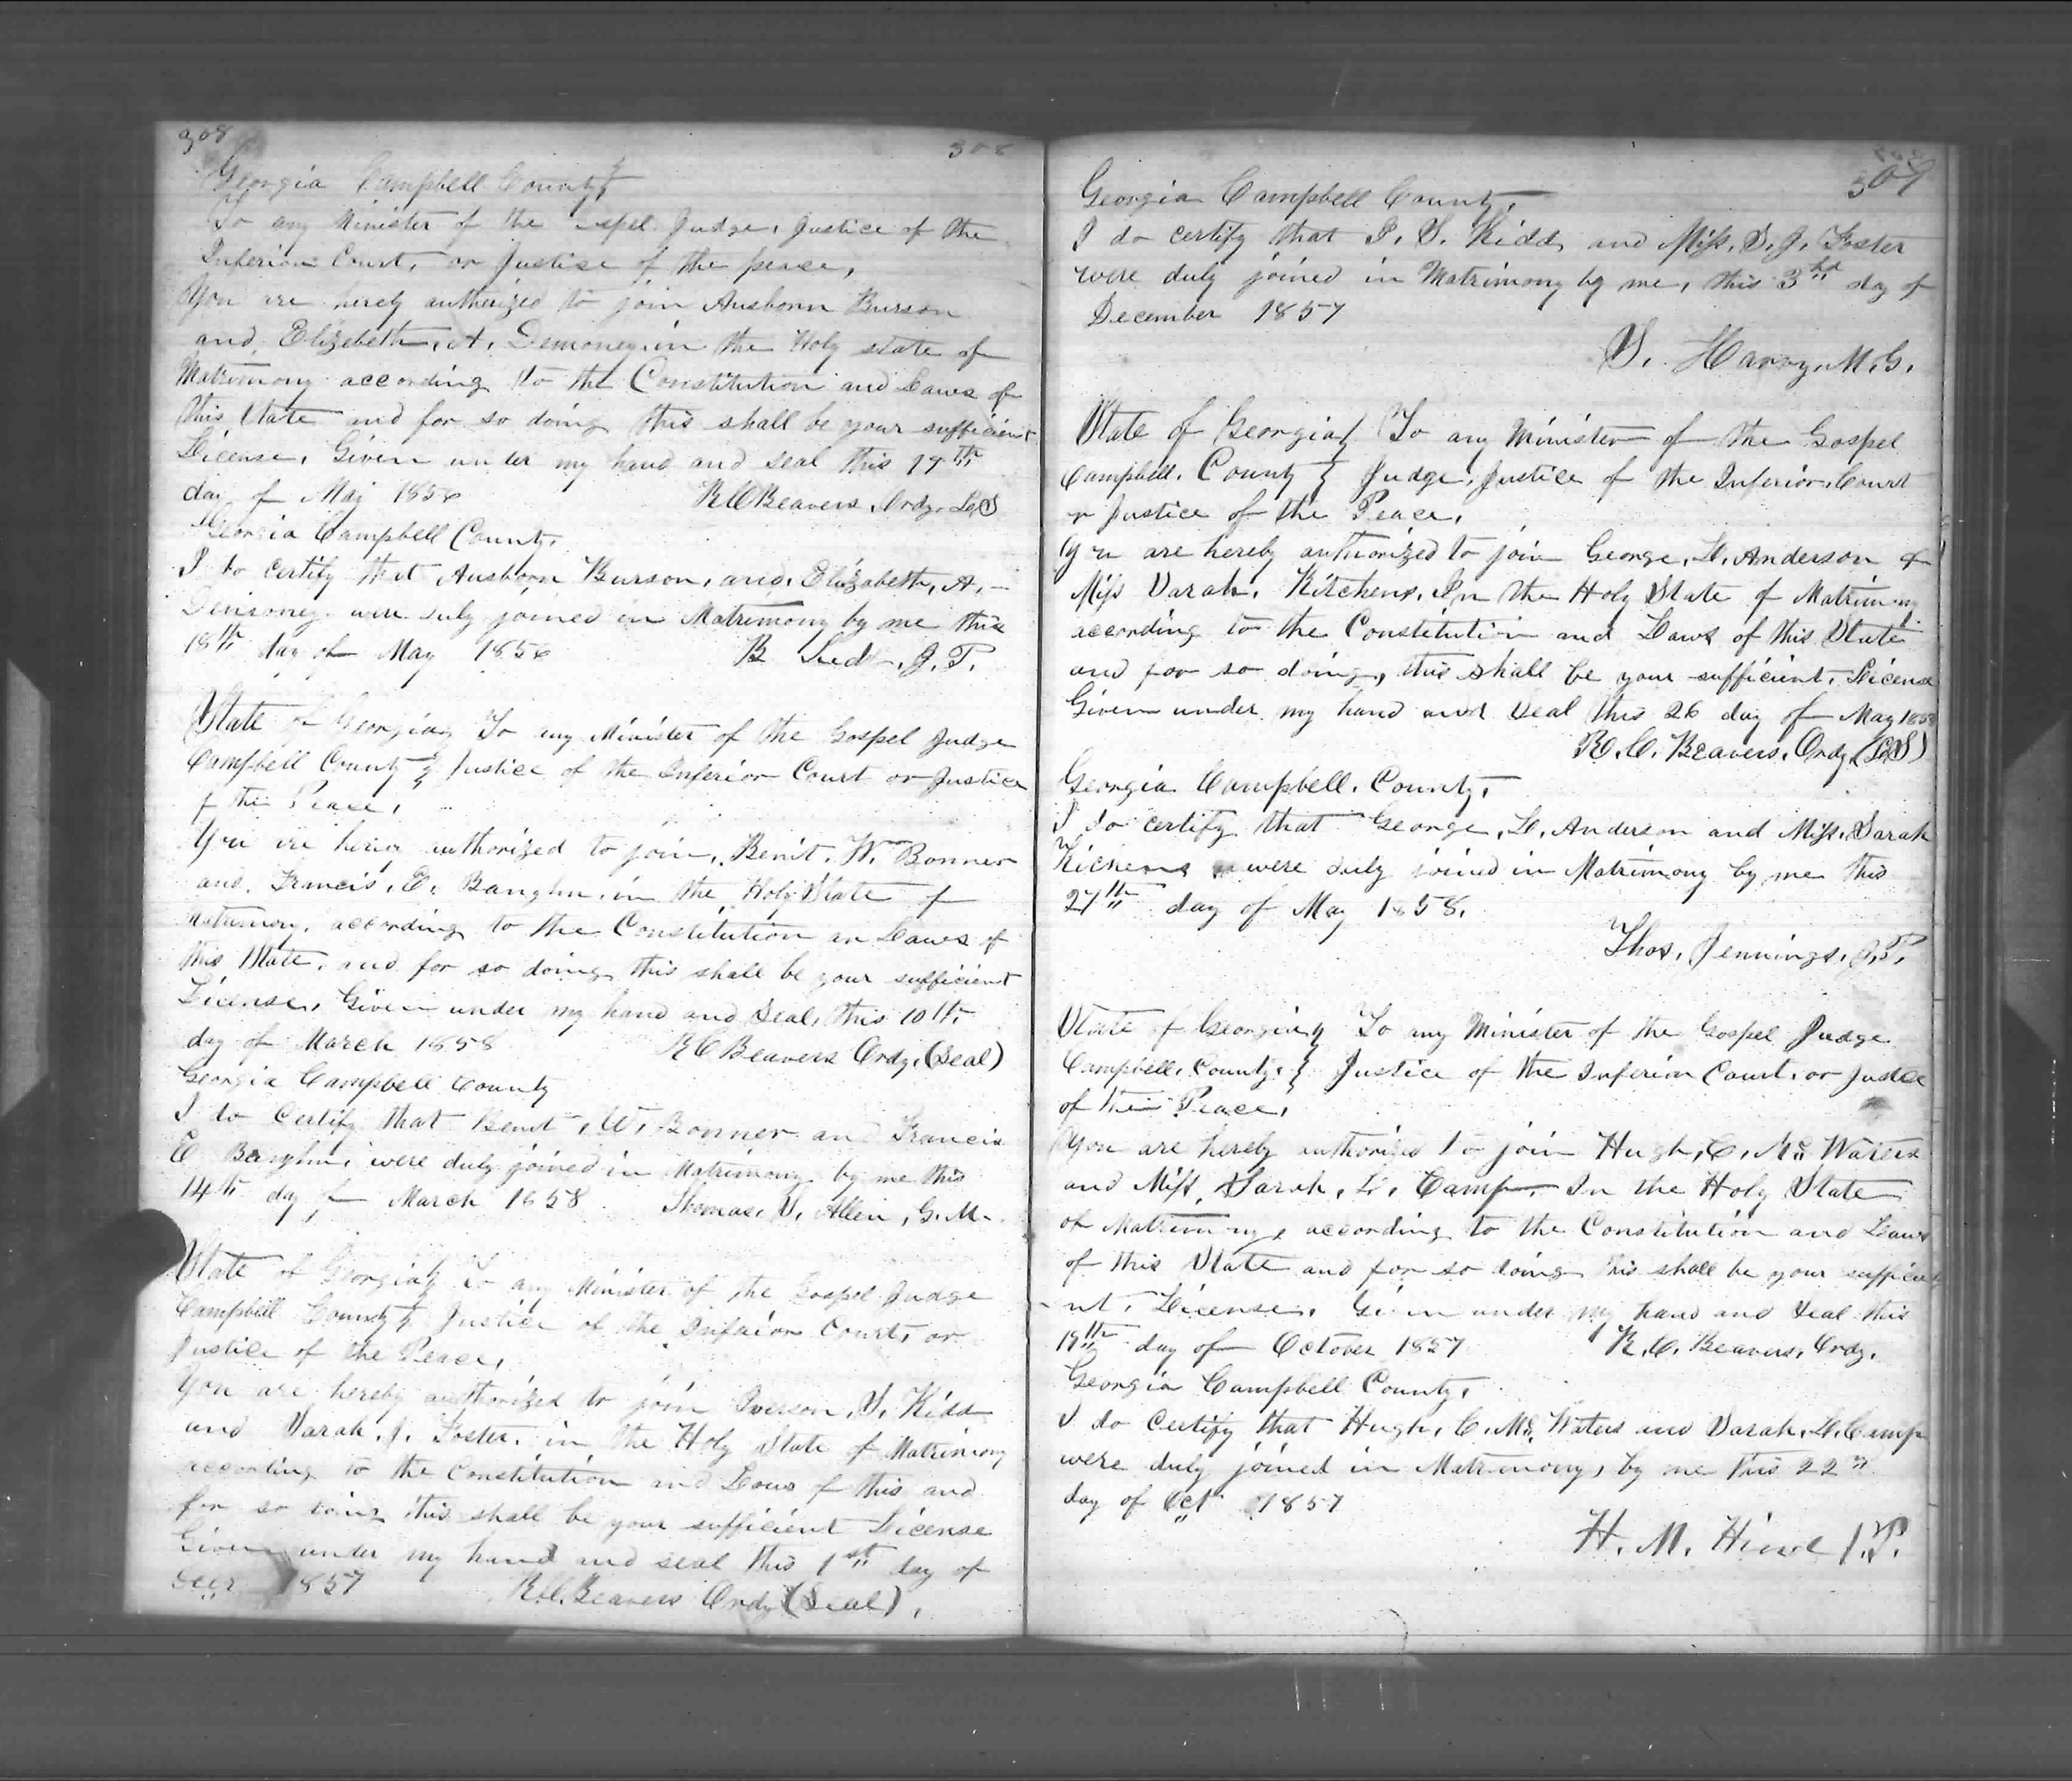 308
308
Georgia Campbell County
To any Minister of the Judge, Justice of the
Inferior Court, or Justice of the peace,
You are herely authorized to join Ausborn Burson
and, Elizebeth, A, Demoney in the Holy state of
Matrimony according to the Constitution and Laws of
this State and for so doing this shall be your sufficient
License, Given under my hand and seal this 17th
day of May 1858 R C Beavers, Ordy. L.S
Georgia Campbell County,
I do certify that Ausborn Burson, and, Elizabeth, A, -
Demoney were duly joined in Matrimony by me this
18th day of May 1856 B J.P.
State of Georgia To any Minister of the Gospel Judge
Campbell County Justice of the Inferior Court or Justice
of the Peace,
You are hereby authorized to join, Benit. W. Bonner
and, Francis, E, in the Holy State of
Matrimony, according to the Constitution an Laws of
this State, and for so doing this shall be your sufficient
License, Given under my hand and Seal, this 10th
day of March 1858 R C Beavers Ordy. (Seal)
Georgia Campbell County
I do Certify that Benit, W, Bonner and Francis
E were duly joined in Matrimony by me this
14th day of March 1858 Thomas. S. Allen, G. M.
State of Georgia To any Minister of the Gospel Judge
Campbell County Justice of the Inferior Court, or
Justice of the Peace,
You are hereby authorized to join Iverson, S, Kidd
and Sarah. J. Foster, in the Holy State of Matrimony
according to the Constitution and Laws of this and
for so doing this shall be your sufficient License
Given under my hand and seal this 1st day of
Decr 1857 R.C. Beavers Ordy (Seal),
309
Georgia Campbell County,
I do certify that I. S. Kidd, and Miss, S. J. Foster
were duly joined in Matrimony by me, this 3rd day of
December 1857
S. Harvy M. G.
State of Georgia To any Minister of the Gospel
Campbell. County Judge, Justice of the Inferior, Court
or Justice of the Peace,
You are hereby authorized to join George, D, Anderson &
Miss Sarah, Kitchens, In the Holy State of Matrimony
according to the Constitution and Laws of this State
and for so doing, this shall be your sufficient, License
Given under my hand and seal this 26 day of May 1858
R. C. Beavers, Ordy (L.S)
Georgia Campbell, County,
I do certify that George, D, Anderson and Miss, Sarah
Kichens were duly joined in Matrimony by me this
27th day of May 1858,
Thos, Jennings, J.P.
State of Georgia To any Minister of the Gospel Judge
Campbell, County, Justice of the Inferior Court, or Justice
of the Peace,
You are hereby authorized to join Hugh, C, Mc Waters
and Miss, Sarah, L, Camp, In the Holy State
of Matrimony, according to the Constitution and Laws
of this State and for so doing this shall be your sufficie
-nt, License, Given under my hand and seal this
19th day of October 1857 R, C, Beavers, Ordy,
Georgia Campbell County,
I do Certify that Hugh, C, Mc, Waters and Sarah, L, Camp
were duly joined in Matrimony, by me this 22nd
day of Oct 1857
H. M. J.P.